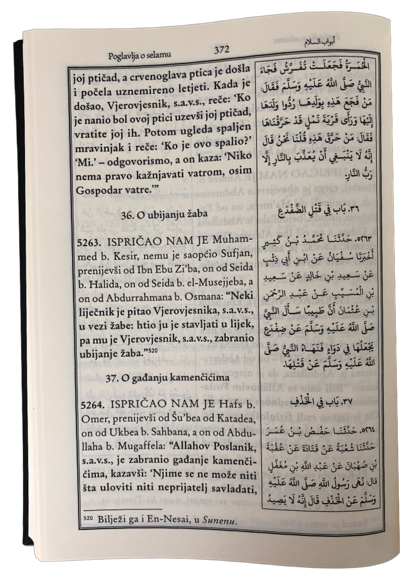 Poglavlja o selamu
372
أبواب السلام
joj ptičad, a crvenoglava ptica je došla
i počela uznemireno letjeti. Kada je
došao, Vjerovjesnik, s.a.v.s., reče: ‘Ko
je nanio bol ovoj ptici uzevši joj ptičad,
vratite joj ih. Potom ugleda spaljen
mravinjak i reče: ‘Ko je ovo spalio?’
‘Mi.’ – odgovorismo, a on kaza: ‘Niko
nema pravo kažnjavati vatrom, osim
Gospodar vatre.’”
36. O ubijanju žaba
5263. ISPRIČAO NAM JE Muham-
med b. Kesir, nemu je saopćio Sufjan,
prenijevši od Ibn Ebu Zi’ba, on od Seida
b. Halida, on od Seida b. el-Musejjeba, a
on od Abdurrahmana b. Osmana: “Neki
liječnik je pitao Vjerovjesnika, s.a.v.s.,
u vezi žabe: htio ju je stavljati u lijek,
pa mu je Vjerovjesnik, s.a.v.s., zabranio
ubijanje žaba.”520
37. O gađanju kamenčićima
5264. ISPRIČAO NAM JE Hafs b.
Omer, prenijevši od Šu’bea od Katadea,
on od Ukbea b. Sahbana, a on od Abdu-
llaha b. Mugaffela: “Allahov Poslanik,
s.a.v.s., je zabranio gađanje kamenči-
ćima, kazavši: ‘Njime se ne može niti
šta uloviti niti neprijatelj savladati,
520 Bilježi ga i En-Nesai, u Sunenu.
الْحُمَّرَةُ فَجَعَلَتْ تُفَرِّشُ فَجَاءَ
النَّبِيُّ صَلَّى اللَّهُ عَلَيْهِ وَسَلَّمَ فَقَالَ
مَنْ فَجَعَ هَذِهِ بِوَلَدِهَا رُدُّوا وَلَدَهَا
إِلَيْهَا وَرَأَى قَرْيَةَ نَمْلٍ قَدْ حَرَّقْنَاهَا
فَقَالَ مَنْ حَرَّقَ هَذِهِ قُلْنَا نَحْنُ قَالَ
إِنَّهُ لَا يَنْبَغِي أَنْ يُعَذِّبَ بِالنَّارِ إِلَّا
رَبُّ النَّارِ.
٣٦. بَاب فِي قَتْلِ الضِّفْدَعِ
٥٢٦٣. حَدَّثَنَا مُحَمَّدُ بْنُ كَثِيرٍ
أَخْبَرَنَا سُفْيَانُ عَنْ ابْنِ أَبِي ذِئْبٍ
عَنْ سَعِيدِ بْنِ خَالِدٍ عَنْ سَعِيدِ
بْنِ الْمُسَيِّبِ عَنْ عَبْدِ الرَّحْمَنِ
بْنِ عُثْمَانَ أَنَّ طَبِيبًا سَأَلَ النَّبِيَّ
صَلَّى اللَّهُ عَلَيْهِ وَسَلَّمَ عَنْ ضِفْدَعٍ
يَجْعَلُهَا فِي دَوَاءٍ فَنَهَاهُ النَّبِيُّ صَلَّى
اللَّهُ عَلَيْهِ وَسَلَّمَ عَنْ قَتْلِهَا.
٣٧. بَاب فِي الْخَذْفِ
٥٢٦٤. حَدَّثَنَا حَفْصُ بْنُ عُمَرَ
حَدَّثَنَا شُعْبَةُ عَنْ قَتَادَةَ عَنْ عُقْبَةَ
بْنِ صُهْبَانَ عَنْ عَبْدِ اللَّهِ بْنِ مُغَفَّلٍ
قَالَ نَهَى رَسُولُ اللَّهِ صَلَّى اللَّهُ عَلَيْهِ
وَسَلَّمَ عَنْ الْخَذْفِ قَالَ إِنَّهُ لَا يَصِيدُ